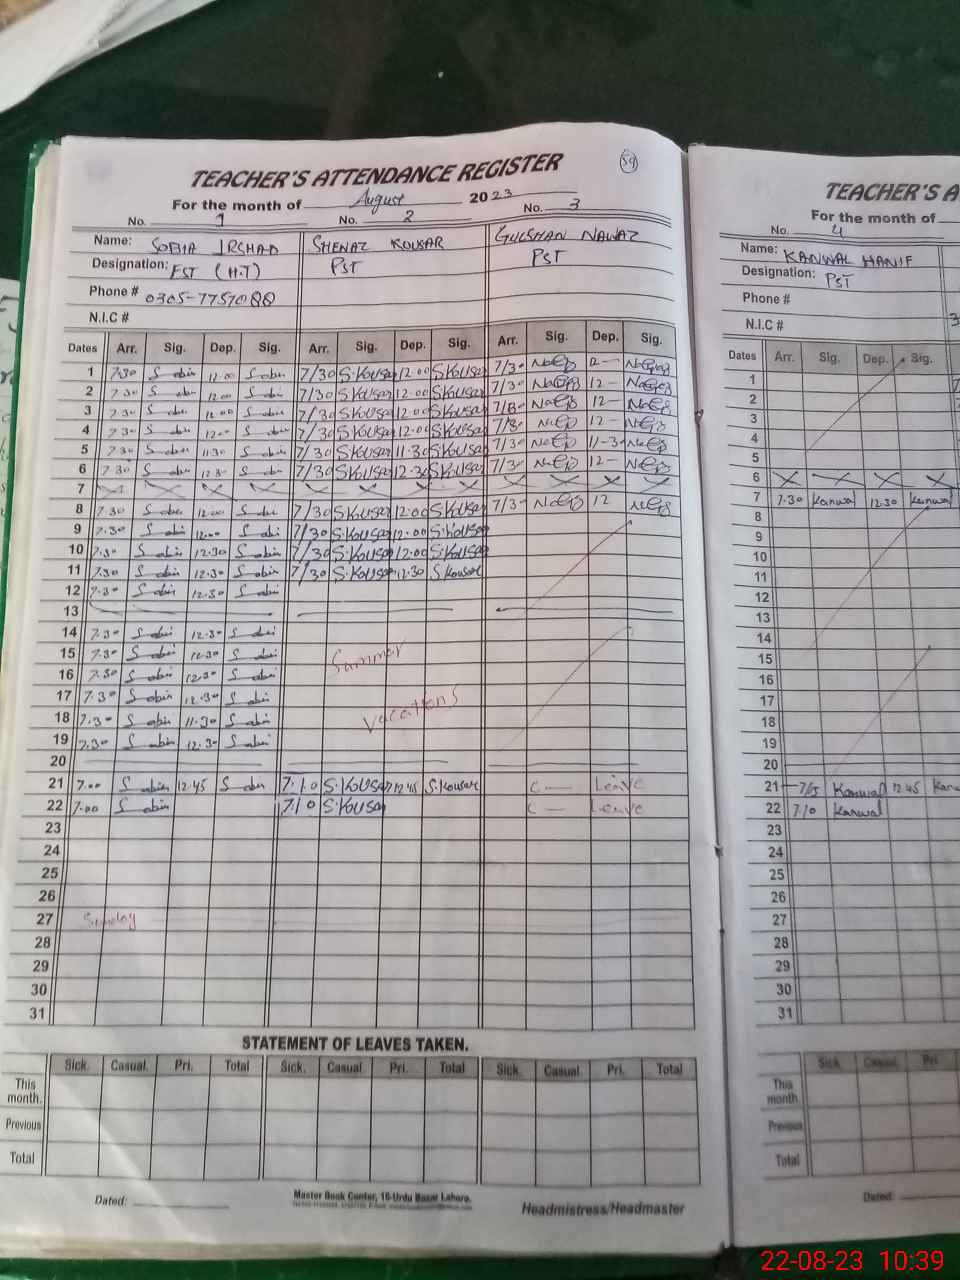 59
TEACHER'S ATTENDANCE REGISTER
For the month of August 2023
No. 1 No. 2 No. 3
Name: SOBIA IRSHAD SHENAZ KOUSAR GULSHAN NAWAZ
Designation: EST (H.T) PST PST
Phone # 0305-7757088
N.I.C #
Dates Arr. Sig. Dep. Sig. Arr. Sig. Dep. Sig. Arr. Sig. Dep. Sig.
1 7.30 Sobia 12.00 Sobia 7/30 S.Kousar 12.00 S.Kousar 7/30 12-
2 7.30 Sobia 12.00 Sobia 7/30 S.Kousar 12.00 S.Kousar 7/30 12-
3 7.30 Sobia 12.00 Sobia 7/30 S.Kousar 12.00 S.Kousar 7/30 12-
4 7.30 Sobia 12.00 Sobia 7/30 S.Kousar 12.00 S.Kousar 7/30 12-
5 7.30 Sobia 11.30 Sobia 7/30 S.Kousar 11.30 S.Kousar 7/30 11-30
6 7.30 Sobia 12.30 Sobia 7/30 S.Kousar 12.30 S.Kousar 7/30 12-
7
8 7.30 Sobia 12.00 Sobia 7/30 S.Kousar 12.00 S.Kousar 7/30 12
9 7.30 Sobia 12.00 Sobia 7/30 S.Kousar 12.00 S.Kousar
10 7.30 Sobia 12.30 Sobia 7/30 S.Kousar 12.00 S.Kousar
11 7.30 Sobia 12.30 Sobia 7/30 S.Kousar 12.30 S.Kousar
12 7.30 Sobia 12.30 Sobia
13
14 7.30 Sobia 12.30 Sobia
15 7.30 Sobia 12.30 Sobia Summer
16 7.30 Sobia 12.30 Sobia
17 7.30 Sobia 12.30 Sobia vacations
18 7.30 Sobia 11.30 Sobia
19 7.30 Sobia 12.30 Sobia
20
21 7.00 Sobia 12.45 Sobia 7.10 S.Kousar 12.45 S.Kousar C- Leave
22 7.00 Sobia 7.10 S.Kousar C- Leave
23
24
25
26
27 Sunday
28
29
30
31
STATEMENT OF LEAVES TAKEN.
Sick. Casual. Pri. Total Sick. Casual Pri. Total Sick. Casual Pri. Total
This month.
Previous
Total
Dated:
Master Book Center, 16-Urdu Bazar Lahore.
Headmistress/Headmaster
TEACHER'S A
For the month of
No. 4
Name: KANWAL HANIF
Designation: PST
Phone #
N.I.C #
Dates Arr. Sig. Dep. Sig.
1
2
3
4
5
6
7 7.30 Kanwal 12.30 Kanwal
8
9
10
11
12
13
14
15
16
17
18
19
20
21 7/5 Kanwal 12.45 Kanw
22 7.10 Kanwal
23
24
25
26
27
28
29
30
31
Sick Casual Pri.
This month
Previous
Total
Dated:
22-08-23 10:39